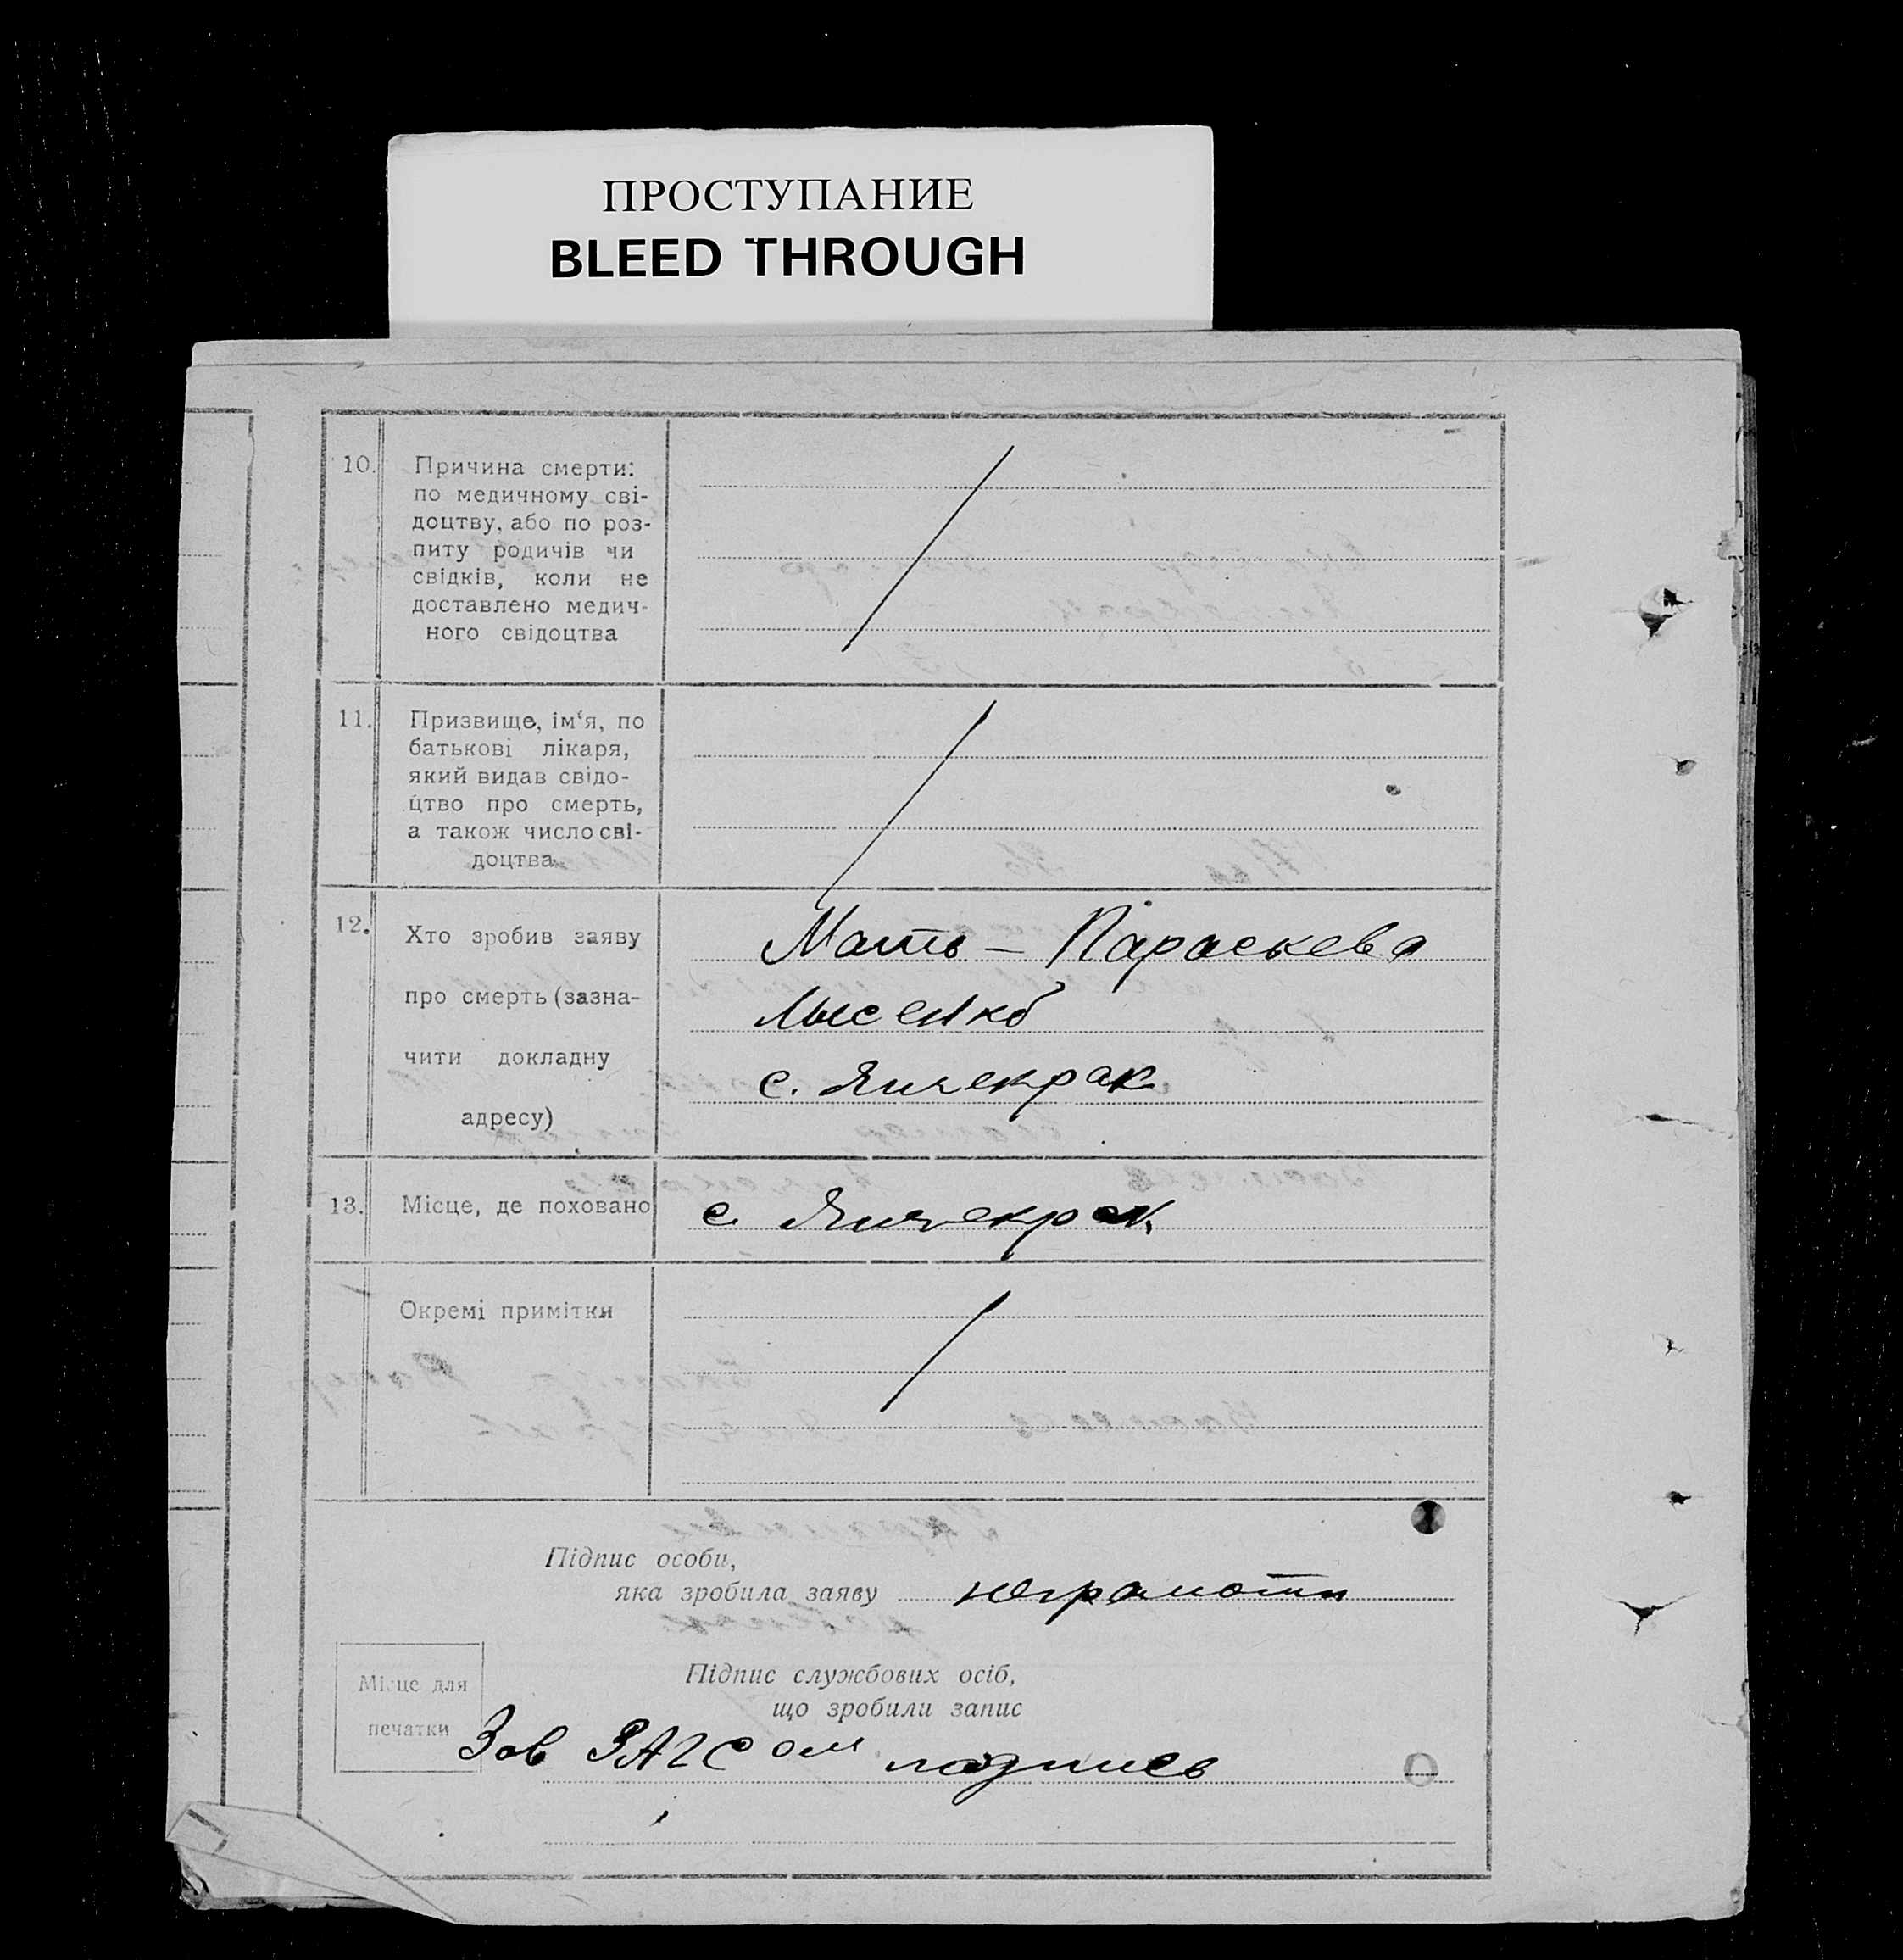 ПРОСТУПАНИЕ
BLEED THROUGH
10.
Причина смерти:
по медичному сві-
доцтву, або по роз-
питу родичів чи
свідків, коли не
доставлено медич-
ного свідоцтва
11.
Призвище, ім‘я, по
батькові лікаря,
який видав свідо-
цтво про смерть,
а також число сві-
доцтва
12.
Хто зробив заяву
про смерть (зазна-
чити докладну
адресу)
Мать — Параскева
Лысенко
с. Янчекрак
13.
Місце, де поховано
с. Янчекрак
Окремі примітки
Підпис особи,
яка зробила заяву
неграмотн
Місце для
печатки
Підпис службових осіб,
що зробили запис
Зав ЗАГСом подпись